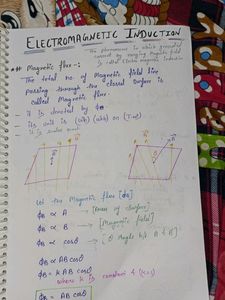 ELECTROMAGNETIC INDUCTION
The phenomenon in which generated
current by varying Magnetic field
is called Electro magnetic induction
Magnetic flux -:
The total no of Magnetic field line
passing through the closed surface is
called Magnetic flux.
- It is denoted by ϕB
- Its unit is (Wb)
- It is scalar
Let the Magnetic flux [ϕB]
ϕB ∝ A [Area of Surface]
ϕB ∝ B → [Magnetic field]
ϕB ∝ cosθ → [θ Angle b/w A & B]
ϕB ∝ AB cosθ
ϕB = k AB cosθ
where k is constant & (k=1)
ϕB = AB cosθ